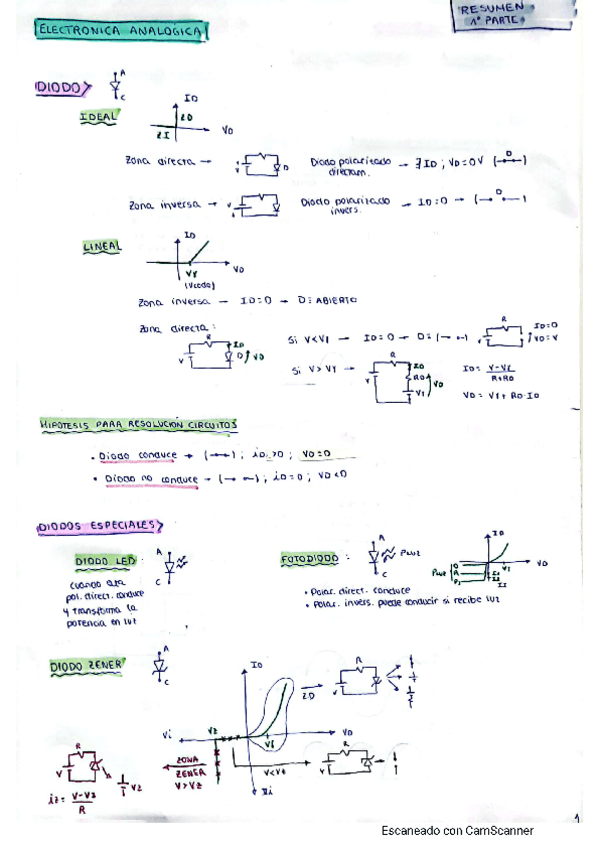 RESUMEN
1ª PARTE
ELECTRONICA ANALOGICA
DIODO
A
C
IDEAL
ID
ZD
ZI
VD
Zona directa → V D Diodo polarizado directam. → ∃ ID ; VD=0V
D
Zona inversa → V Diodo polarizado invers. → ID=0 →
D
LINEAL
ID
VD
Vγ
(Vcodo)
Zona inversa → ID=0 → D=ABIERTO
Zona directa:
R
ID
V
D
VD
Si V<Vγ → ID=0 → D=
R
V
ID=0
VD=V
Si V>Vγ →
R
ID
RD
VD
V
Vγ
ID= V-Vγ
R+RD
VD = Vγ + RD·ID
HIPOTESIS PARA RESOLUCION CIRCUITOS
• Diodo conduce → ; iD>0 ; VD=0
• Diodo no conduce → ; iD=0 ; VD<0
DIODOS ESPECIALES
DIODO LED :
A
C
cuando esta
pol. direct. conduce
y transforma la
potencia en luz
FOTODIODO :
A
C
PLUZ
• Polar. direct. conduce
• Polar. invers. puede conducir si recibe luz
ID
VD
Vγ
PLUZ
DIODO ZENER
A
C
ID
VD
Vi
Vz
Vγ
Ii
ZD
R
V
V<Vz
R
V
ZONA
ZENER
V>Vz
R
V
Vz
iz= V-Vz
R
1
Escaneado con CamScanner